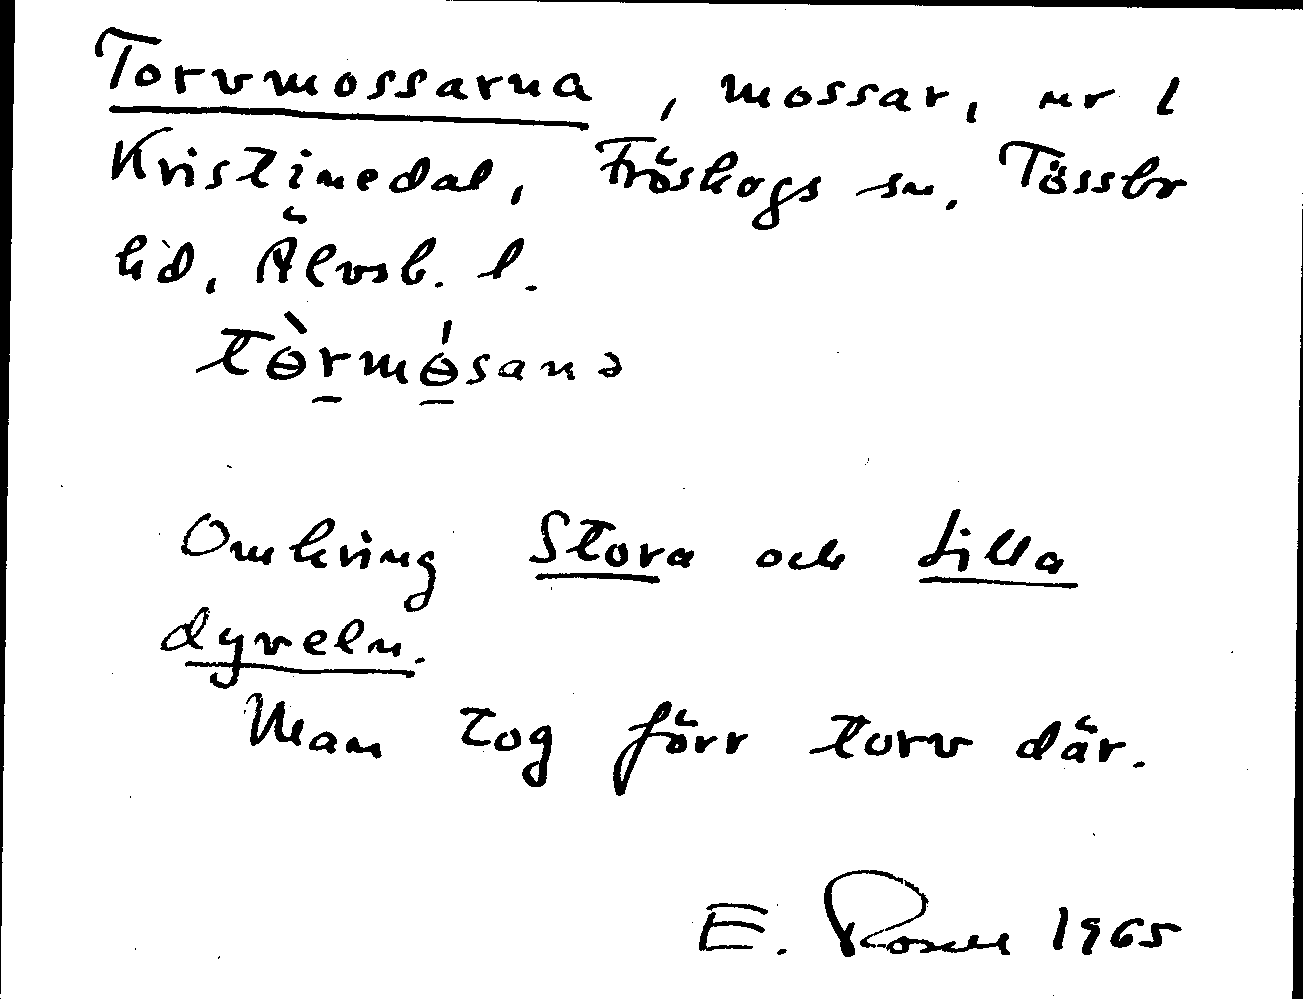 Torvmossarna, mossar, nr 1
Kristinedal, Fröskogs sn. Tössbo
hd, Älvsb. l.
tɵ̀rmɵ́sanə
Omkring Stora och Lilla
dyveln.
Man tog förr torv där.
E. Rosell 1965